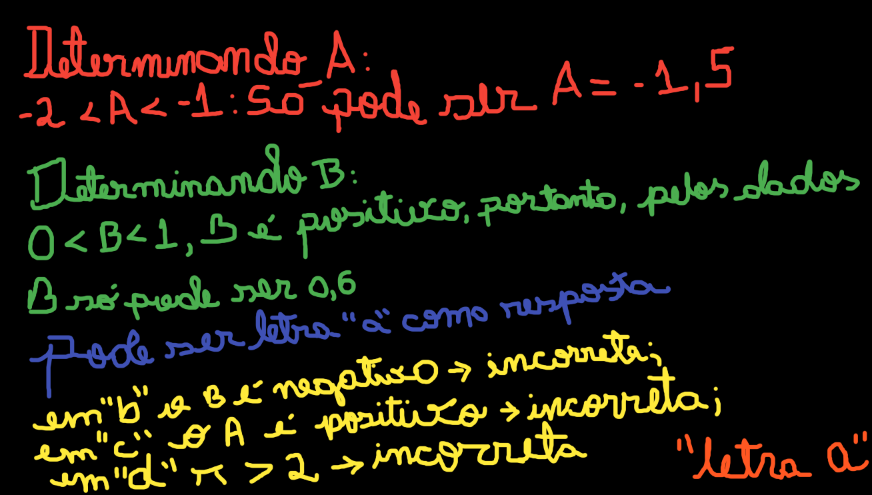 Determinando A:
-2 < A < -1 : Só pode ser A = -1,5
Determinando B:
0 < B < 1, B é positivo, portanto, pelos dados
B só pode ser 0,6
Pode ser letra "a" como resposta
em "b" o B é negativo → incorreta;
em "c" o A é positivo → incorreta;
em "d" π > 2 → incorreta
"letra a"